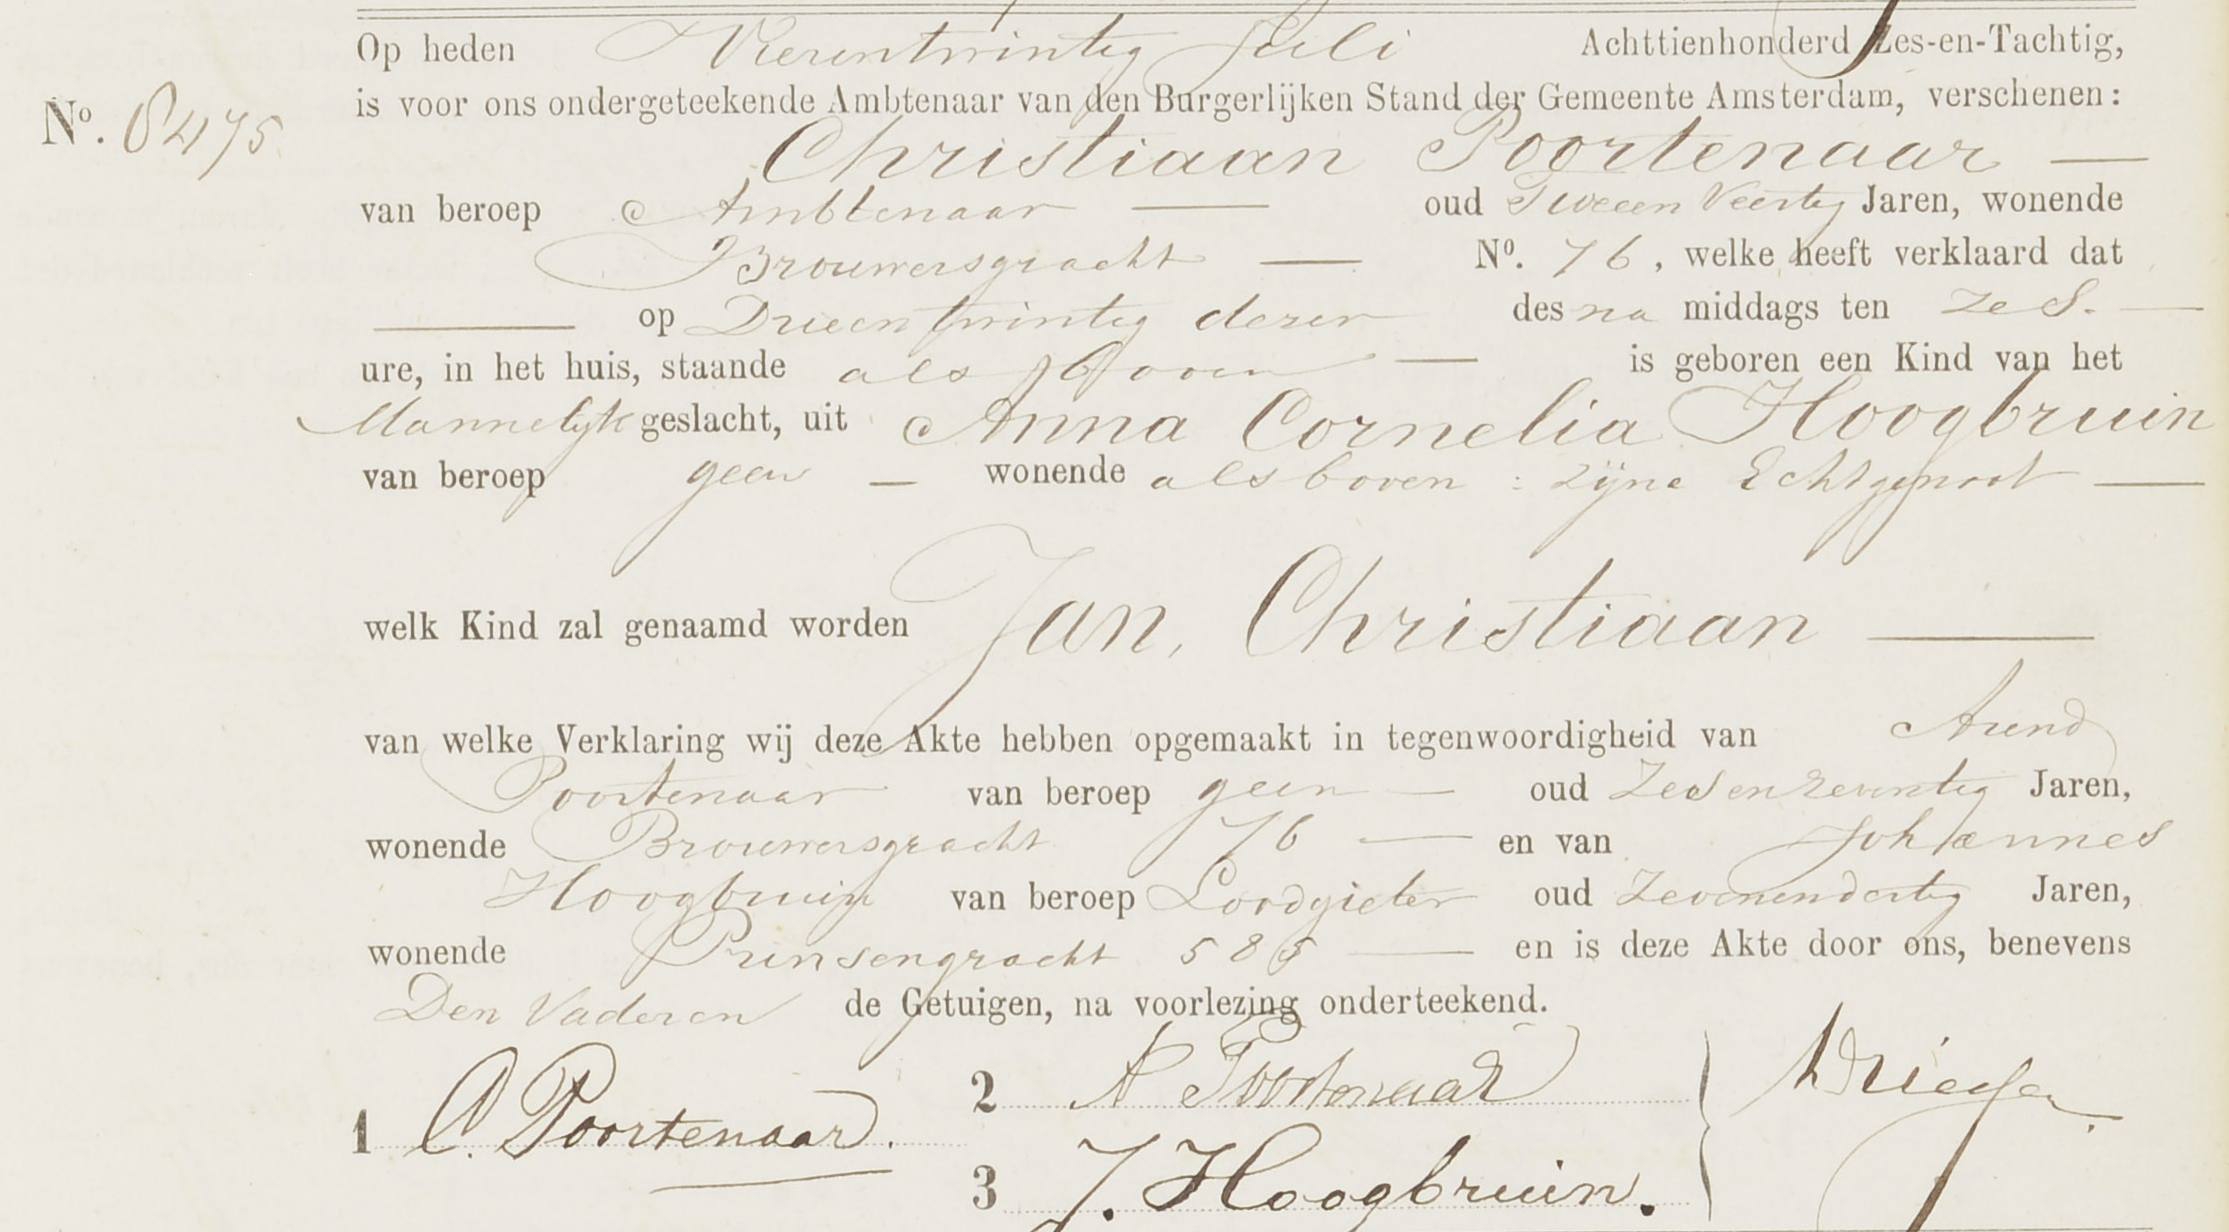 Op heden Vierentwintig Juli Achttienhonderd Zes-en-Tachtig,
No. 6475
is voor ons ondergeteekende Ambtenaar van den Burgerlijken Stand der Gemeente Amsterdam, verschenen:
Christiaan Poortenaar
van beroep Ambtenaar oud Tweeen Veertig Jaren, wonende
Brouwersgracht No. 76, welke heeft verklaard dat
op Drieentwintig dezer des na middags ten zes.
ure, in het huis, staande als boven is geboren een Kind van het
Mannelijk geslacht, uit Anna Cornelia Hoogbruin
van beroep geen wonende als boven : zijne Echtgenoot
welk Kind zal genaamd worden Jan, Christiaan
van welke Verklaring wij deze Akte hebben opgemaakt in tegenwoordigheid van Arend
Poortenaar van beroep geen oud Zesenzeventig Jaren,
wonende Brouwersgracht 76 en van Johannes
Hoogbruin van beroep Loodgieter oud Zevenendertig Jaren,
wonende Prinsengracht 585 en is deze Akte door ons, benevens
Den Vader en de Getuigen, na voorlezing onderteekend.
1 C. Poortenaar.
2 A Poortenaar
3 J. Hoogbruin.